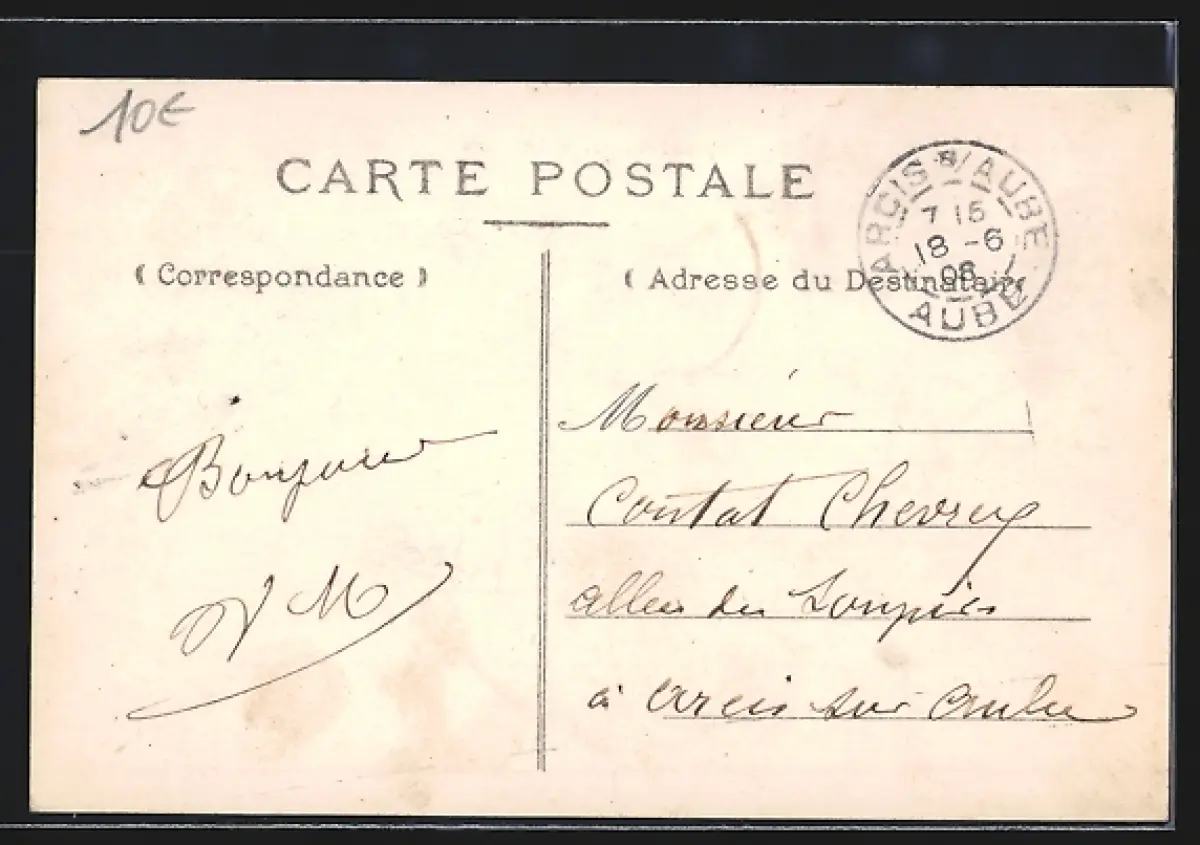 10€
CARTE POSTALE
( Correspondance )
( Adresse du Destinataire
ARCIS S/ AUBE
7 15
18 -6
06
AUBE
Bonjour
V M
Monsieur
Contat Chevrey
allée des Soupirs
à Arcis sur Aube